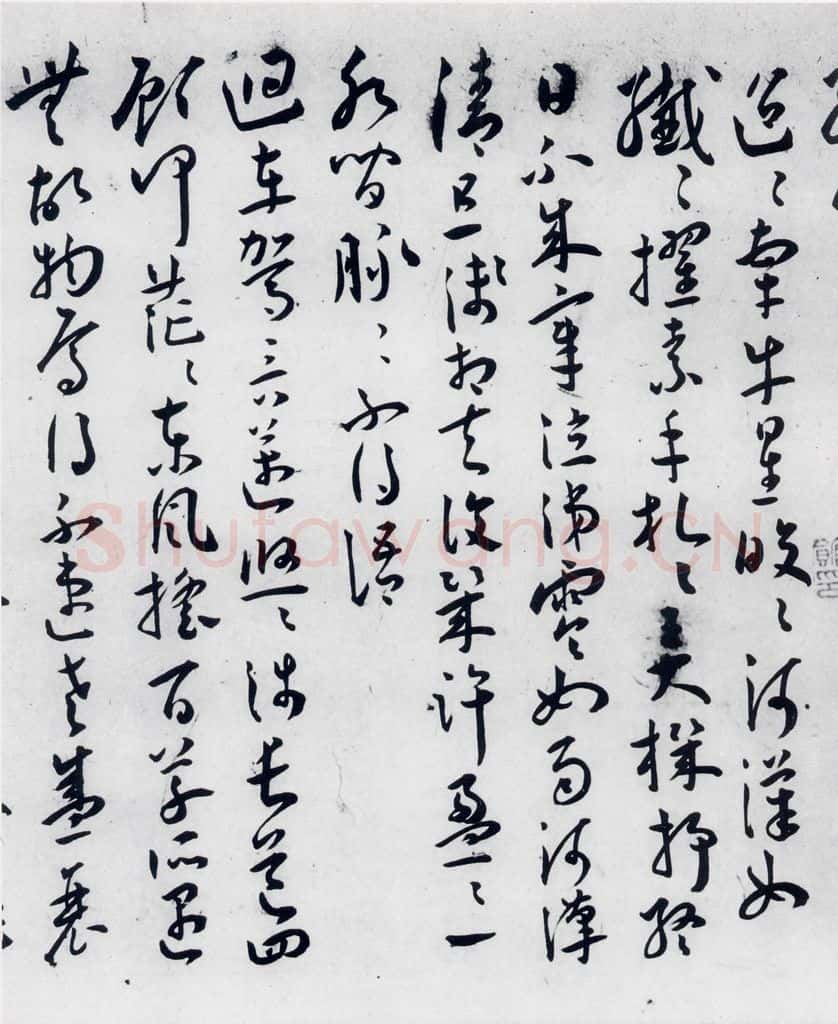 迢〻牽牛星皎〻河漢女
纖〻擢素手札〻弄機杼終
日不成章泣涕零如雨河漢
清且淺相去復幾許盈〻一
水間脉〻不得語
迴車駕言邁悠〻涉長道四
顧何茫〻東風搖百草所遇
無故物焉得不速老盛衰
Shufawang.CN